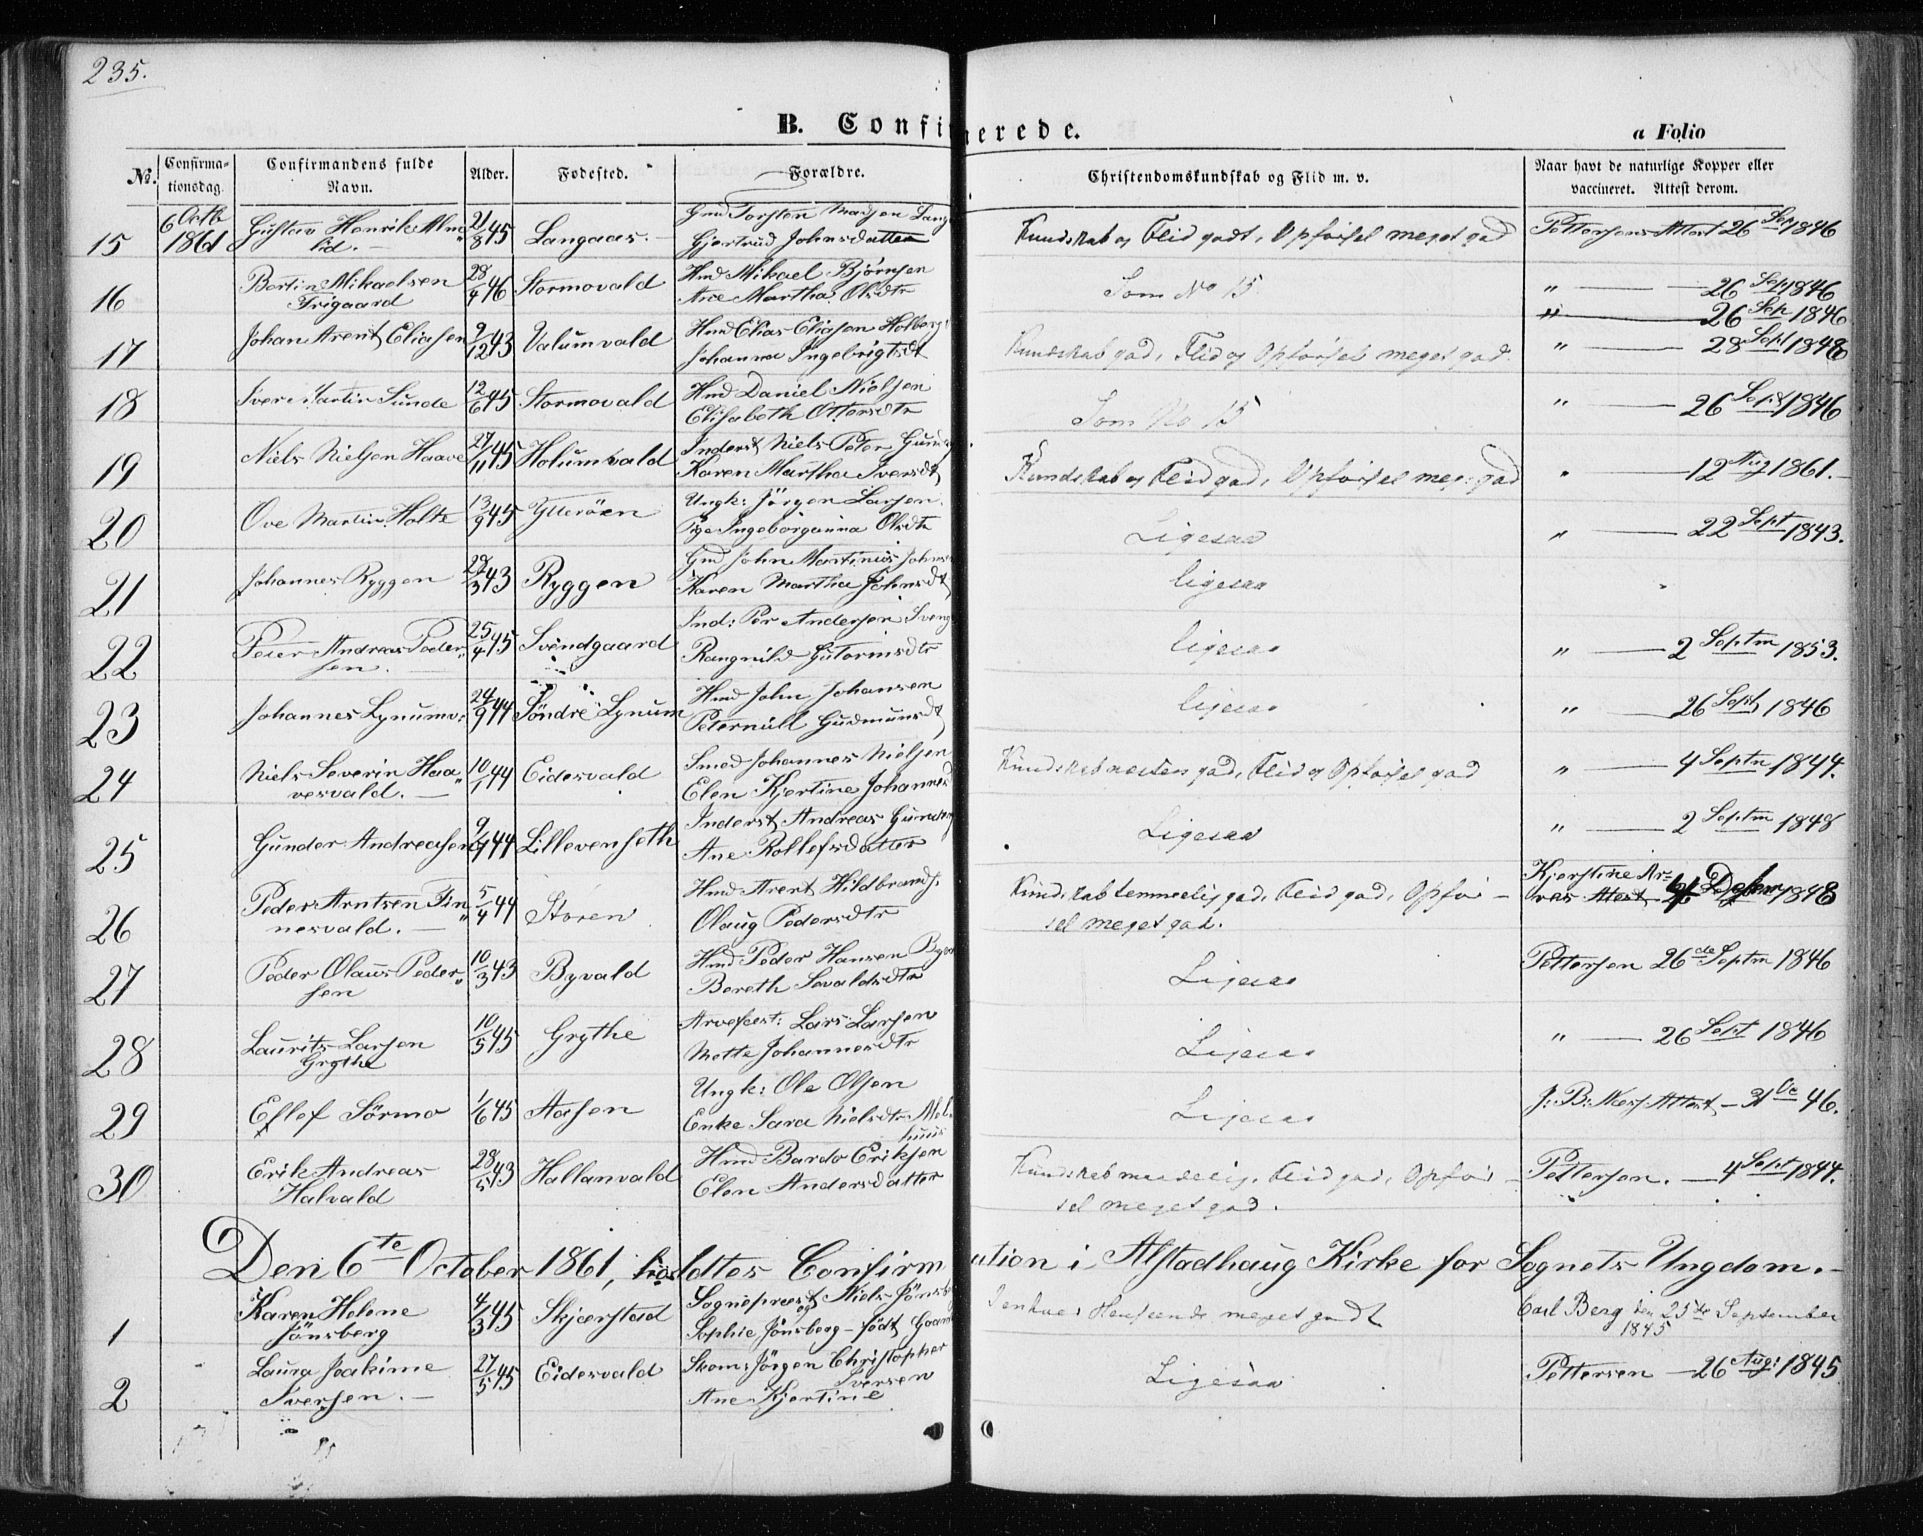 235.
B. Confirmerede.
a Folio
No.
Confirma-
tionsdag.
Confirmandens fulde
Navn.
Alder.
Fødested.
Forældre.
Christendomskundskab og Flid m. v.
Naar havt de naturlige Kopper eller
vaccineret. Attest derom.
15 6 Octb 1861 Gustav Henrik Alm"
lid. — 21/8 45 Langaas. Gmd Torsten Madsen
Gjertrud Johnsdatter Kundskab og Flid godt, Opførsel meget god Pettersens Attest 26 Sep 1846
16 Bertin Mikaelsen
Trigaard 28/4 46 Stormovald Hmd Mikael Bjørnsen
Ane Martha Olsdtr Som No 15 " — 26 Sep 1846
" — 26 Sep 1846
17 Johan Arent Eliasen 2/12 43 Valumvald Hmd Elias Eliasen Holberg
Johanna Ingebrigtsdt Kundskab god, Flid og Opførsel meget god. " — 28 Sept 1848
18 Iver Martin Sunde 12/6 45 Stormovald Hmd Daniel Nielsen
Elisabeth Ottersdtr Som No 15 " — 26 Sept 1846
19 Niels Nielsen Haave 27/11 45 Holumvald Inderst Niels Peter
Karen Martha Iversdt Kundskab og Flid god, Opførsel meg: god " — 12 Aug 1861.
20 Ove Martin Holte 13/9 45 Ytterøen Ungk: Jörgen Larsen
Pige Ingeborganna Olsdtr Ligesaa " — 22 Sept 1843.
21 Johannes Ryggen 29/3 43 Ryggen Gmd John Martinus
Karen Martha Johnsdt ligesaa
22 Peter Andreas Peder"
sen. 25/4 45 Svendgaard Ind: Per Andersen
Rangnild Gutormsdtr ligesaa " — 2 Septm 1853.
23 Johannes Lynumv: 24/9 44 Söndre Lynum Hmd John Johansen
Peternill Gudmunsdt ligesaa " — 26 Sept 1846
24 Niels Severin Haa"
vesvald. — 10/1 44 Eidesvald Smed Johannes Nielsen
Elen Kjertine Johannesd Kundskab næsten god, Flid og Opførsel god " — 4 Septm 1844.
25 Gunder Andreasen 9/1 44 Lillevenseth Inderst Andreas
Ane Rollefsdatter Ligesaa " — 2 Septm 1848
26 Peder Arntsen Fin"
nesvald. — 5/4 44 Storen Hmd Arent Hildbrands.
Olaug Pedersdtr Kundskab temmelig god, Flid god, Opfør-
sel meget god. Kjerstine
Attest 4 Decbr 1848
27 Peder Olaus Peder"
sen 10/3 43 Byvald Hmd Peder Hansen
Bereth Sevaldsdtr Ligesaa Pettersen 26de Septm 1846
28 Laurits Larsen
Grythe 10/5 45 Grythe Arvefæst: Lars Larsen
Mette Johannesdtr Ligesaa " — 26 Sept 1846
29 Ellef Sörmo 1/6 45 Aasen Ungk: Ole Olsen
Enke Sara Nielsdtr
huus Ligesaa J: B: Attest — 31 Oc 46.
30 Erik Andreas
Halvald 28/5 43 Hallanvald Hmd Bardo Eriksen
Elen Andersdatter Kundskab maadelig, Flid god, Opfør-
sel meget god. Pettersen. — 4 Sept 1844.
Den 6te October 1861, holdtes Confirmation i Alstadhaug Kirke for Sognets Ungdom. —
1 Karen Helene
Jönsberg 4/3 45 Skjerstad Sognepræst Niels Jönsberg
og
Sophie Jönsberg – født I enhver Henseende meget godt Carl Berg den 25de September
1845
2 Laura Joakime
Iversen. — 27/5 45 Eidesvald Skom: Jörgen Christopher
Iversen
Ane Kjertine Ligesaa Pettersen — 26 Aug: 1845